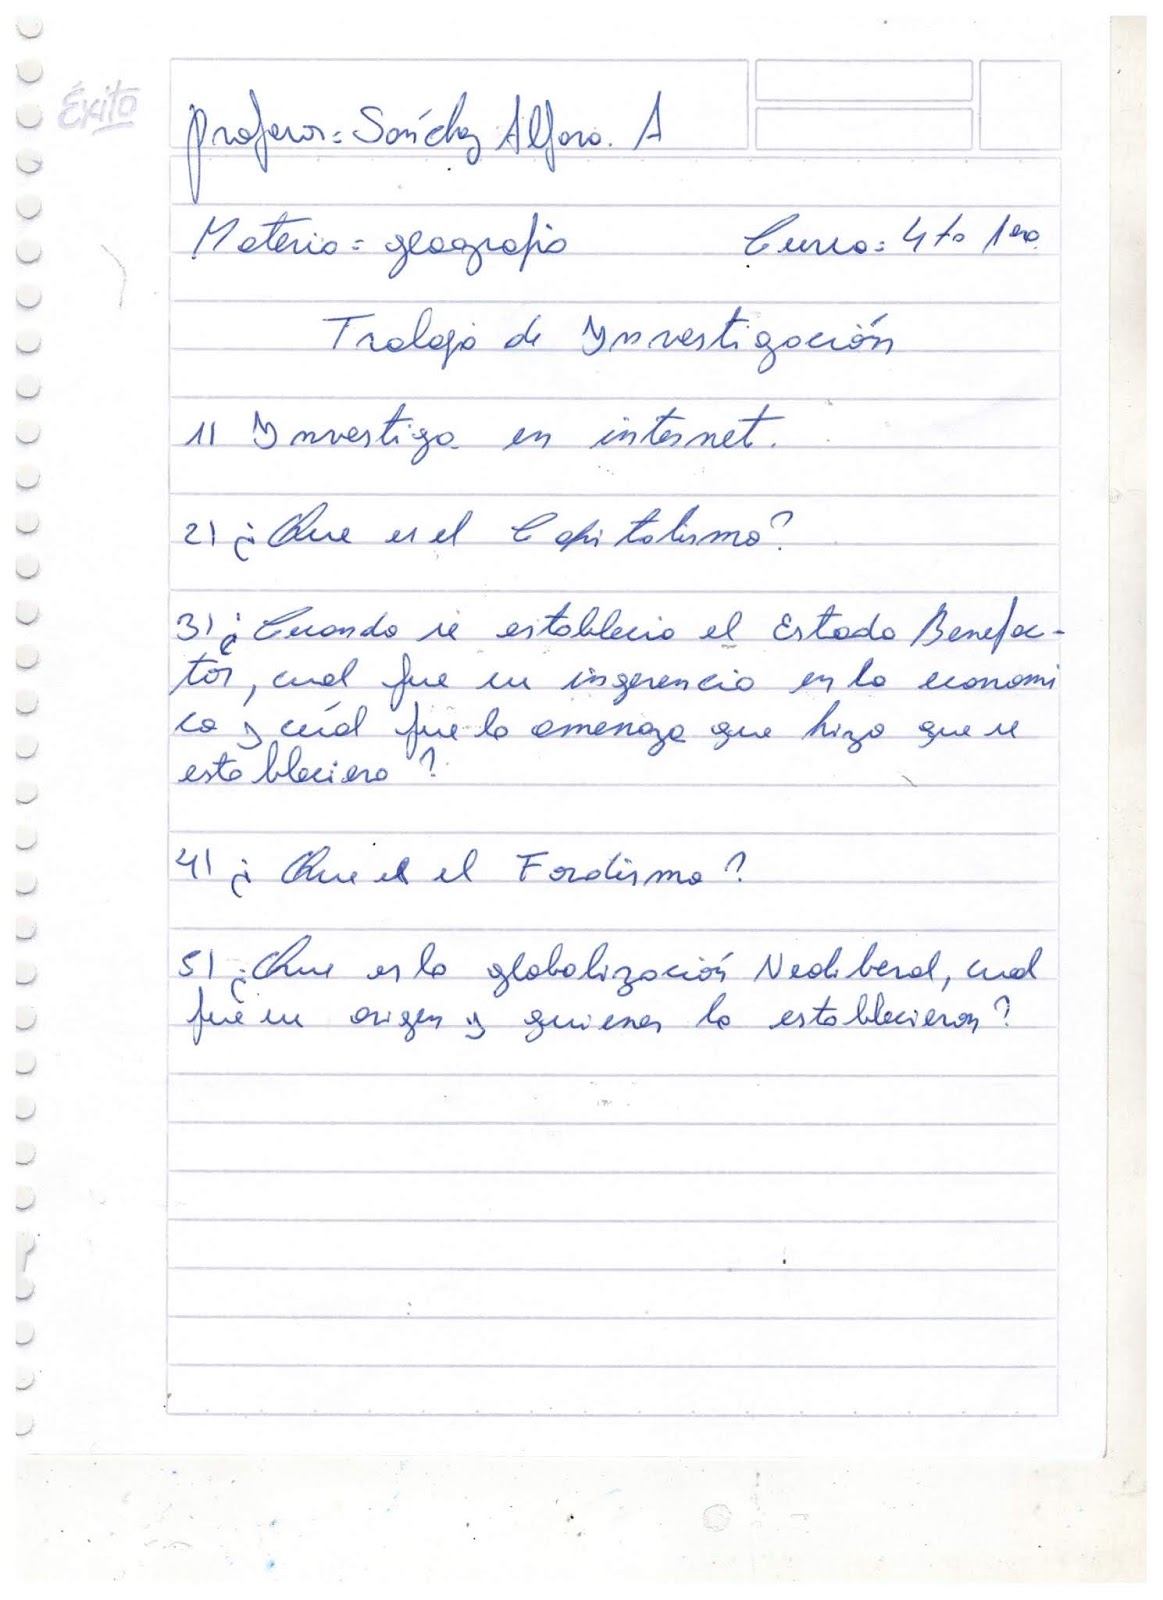 Éxito
Profesor= Sánchez Alfaro. A
Materia= geografia Curso= 4to 1ero.
Trabajo de Investigación
1) Investiga en internet.
2) ¿Que es el Capitalismo?
3) ¿Cuando se establecio el Estado Benefac-
tor, cual fue su ingerencia en la economi
ca y cuál fue la amenaza que hizo que se
estableciera?
4) ¿Que es el Fordismo?
5) ¿Que es la globalización Neoliberal, cual
fue su origen y quienes la establecieron?